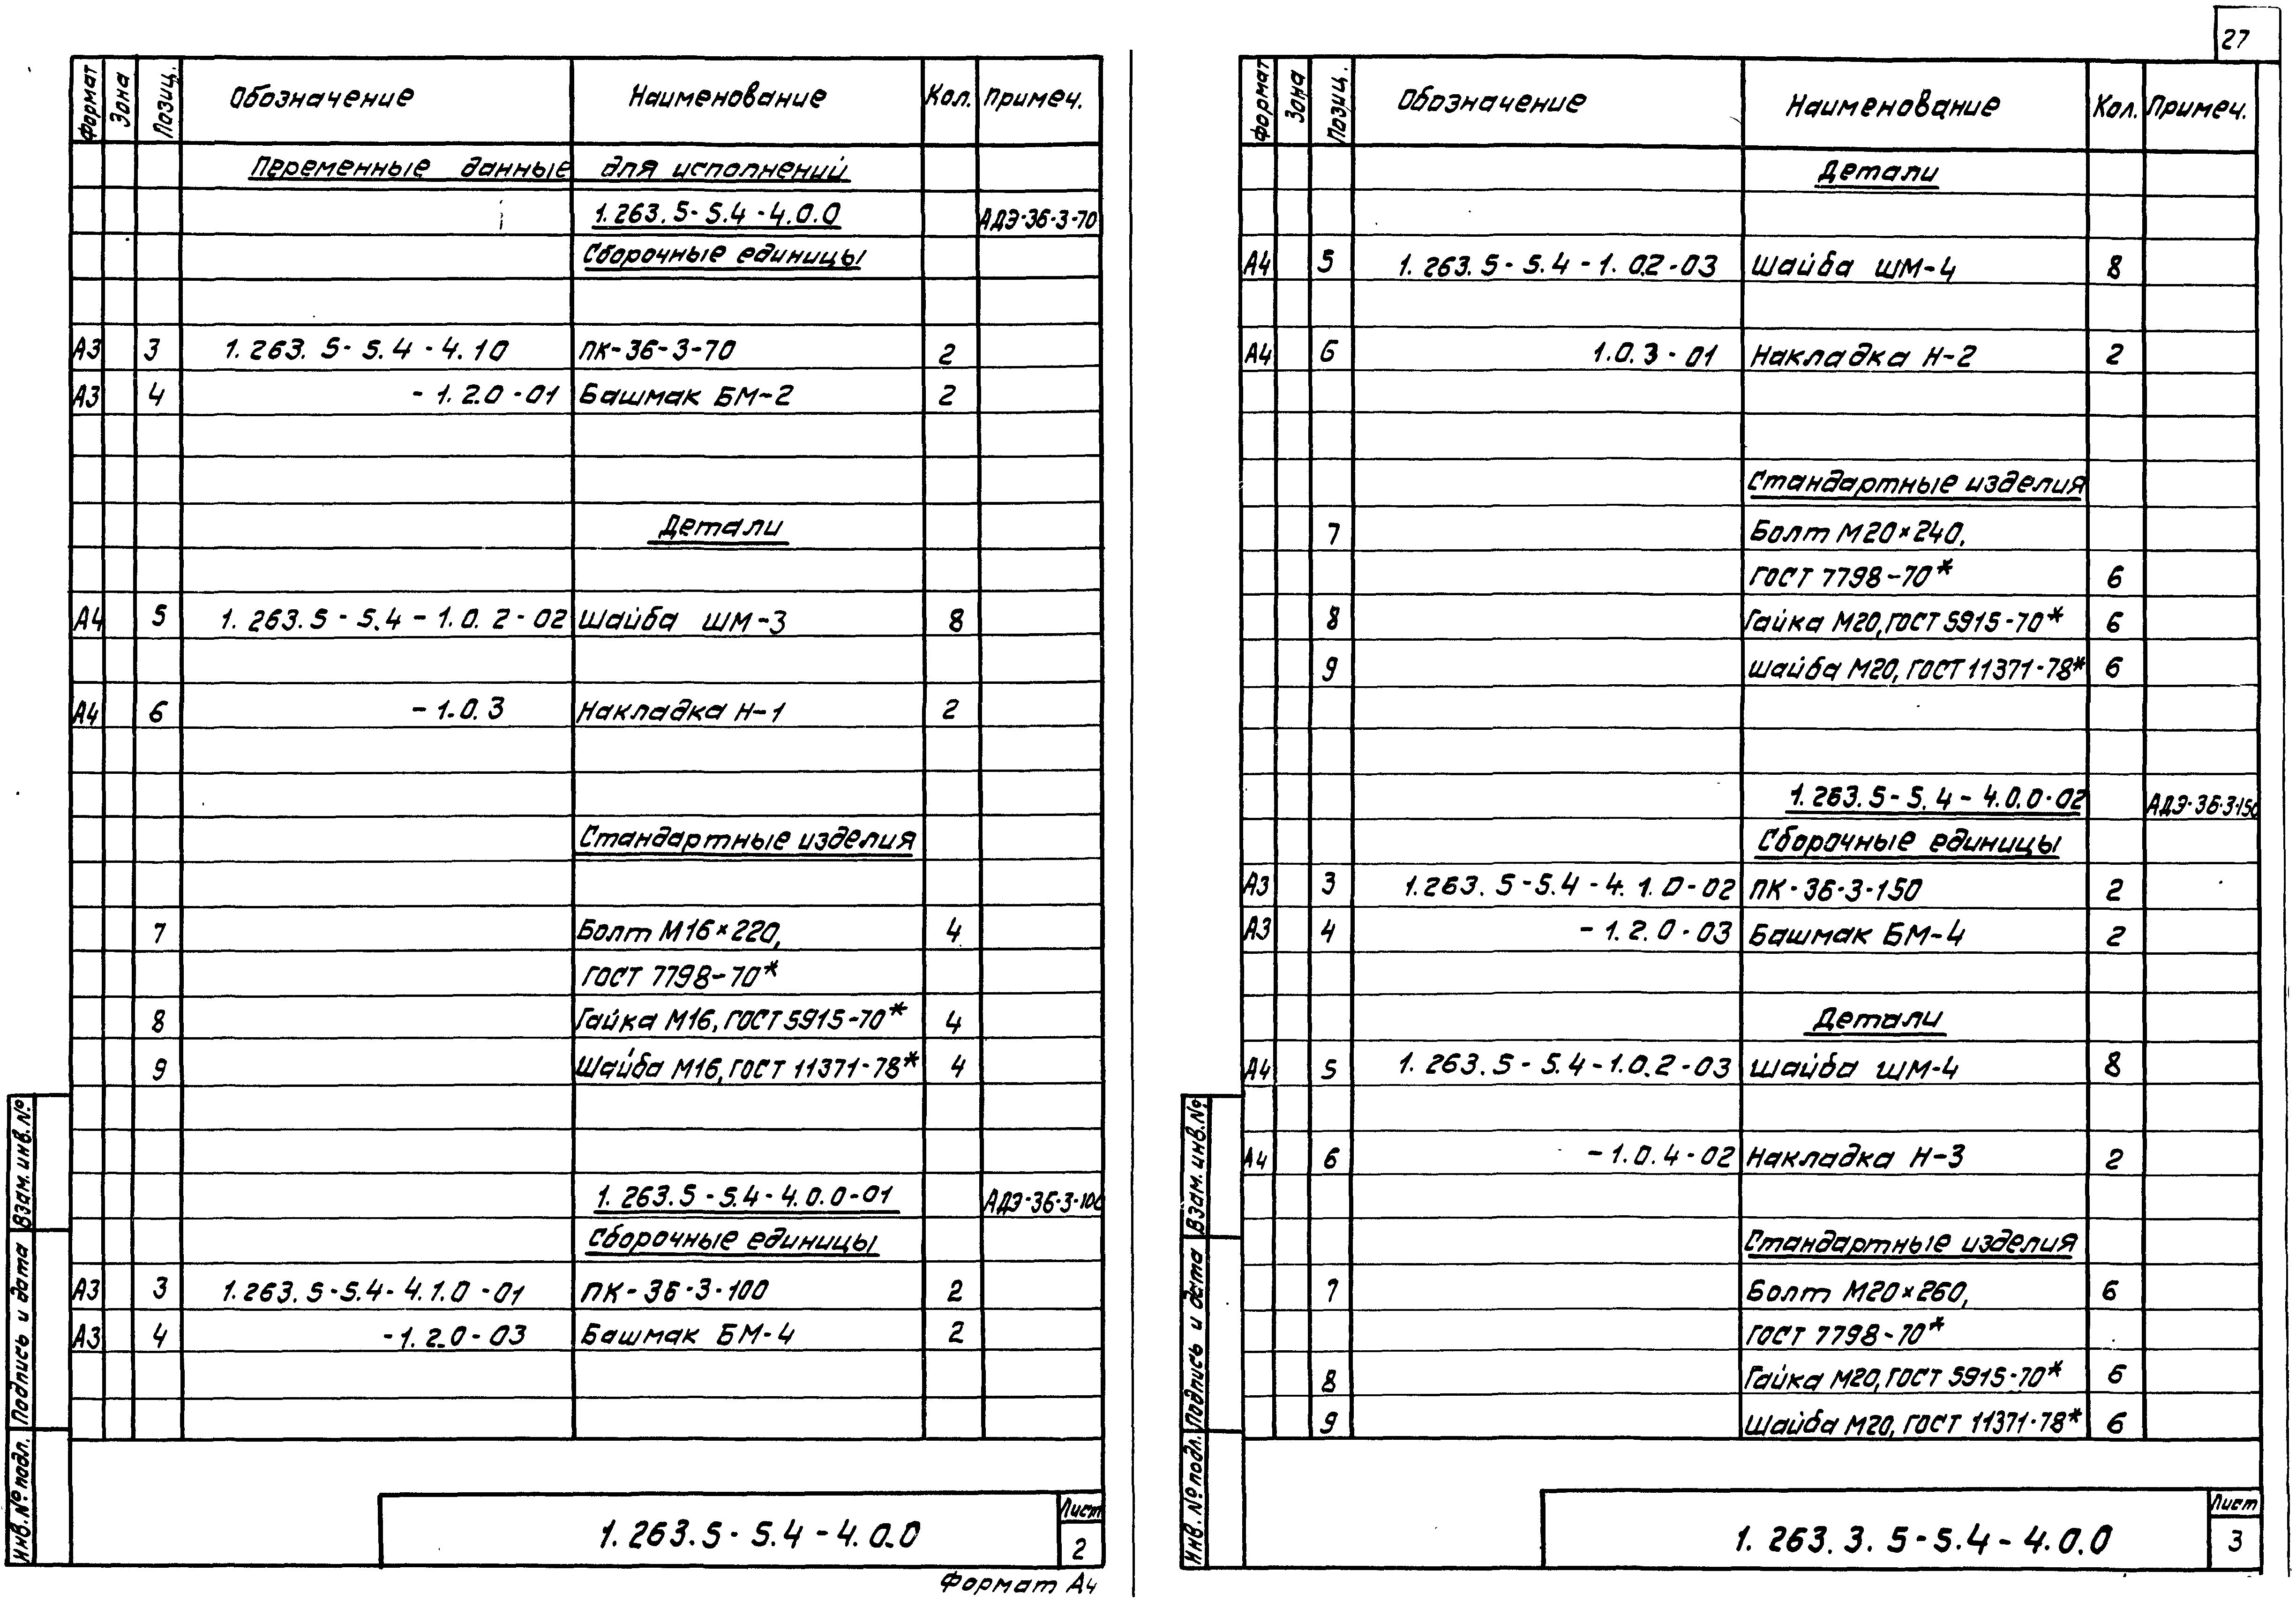 27
Формат Зона Позиц. Обозначение Наименование Кол. Примеч.
Переменные данные для исполнений
1.263.5-5.4-4.0.0 АДЭ-36-3-70
Сборочные единицы
А3 3 1.263.5-5.4-4.10 ПК-36-3-70 2
А3 4 -1.2.0-01 Башмак БМ-2 2
Детали
А4 5 1.263.5-5.4-1.0.2-02 Шайба ШМ-3 8
А4 6 -1.0.3 Накладка Н-1 2
Стандартные изделия
7 Болт М16×220, 4
ГОСТ 7798-70*
8 Гайка М16, ГОСТ 5915-70* 4
9 Шайба М16, ГОСТ 11371-78* 4
1.263.5-5.4-4.0.0-01 АДЭ-36-3-100
Сборочные единицы
А3 3 1.263.5-5.4-4.1.0-01 ПК-36-3-100 2
А3 4 -1.2.0-03 Башмак БМ-4 2
Инв. № подл. Подпись и дата Взам. инв. №
1.263.5-5.4-4.0.0
Лист
2
Формат А4
Формат Зона Позиц. Обозначение Наименование Кол. Примеч.
Детали
А4 5 1.263.5-5.4-1.0.2-03 Шайба ШМ-4 8
А4 6 1.0.3-01 Накладка Н-2 2
Стандартные изделия
7 Болт М20×240,
ГОСТ 7798-70* 6
8 Гайка М20, ГОСТ 5915-70* 6
9 Шайба М20, ГОСТ 11371-78* 6
1.263.5-5.4-4.0.0-02 АДЭ-36-3-150
Сборочные единицы
А3 3 1.263.5-5.4-4.1.0-02 ПК-36-3-150 2
А3 4 -1.2.0-03 Башмак БМ-4 2
Детали
А4 5 1.263.5-5.4-1.0.2-03 Шайба ШМ-4 8
А4 6 -1.0.4-02 Накладка Н-3 2
Стандартные изделия
7 Болт М20×260, 6
ГОСТ 7798-70*
8 Гайка М20, ГОСТ 5915-70* 6
9 Шайба М20, ГОСТ 11371-78* 6
Инв. № подл. Подпись и дата Взам. инв. №
1.263.3.5-5.4-4.0.0
Лист
3